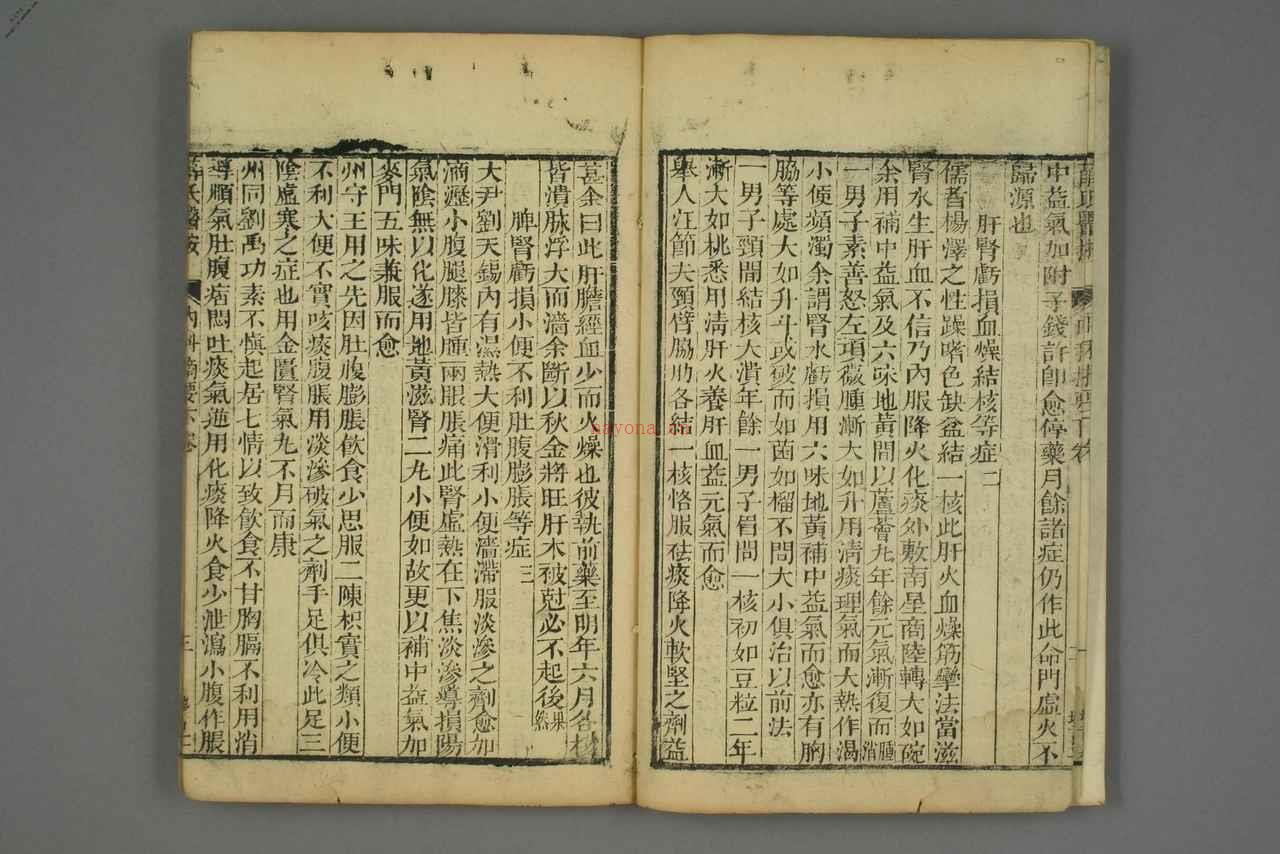 中益氣加附子錢許卽愈停藥月餘諸症仍作此命門虛火不
歸源也
肝腎虧損血燥結核等症二
儒者楊澤之性躁嗜色缺盆結一核此肝火血燥筋攣法當滋
腎水生肝血不信乃內服降火化痰外敷南星商陸轉大如碗
余用補中益氣及六味地黃間以蘆薈丸年餘元氣漸復而腫消
一男子素善怒左項微腫漸大如升用清痰理氣而大熱作渴
小便頻濁余謂腎水虧損用六味地黃補中益氣而愈亦有胸
脇等處大如升斗或破而如菌如榴不問大小俱治以前法
一男子頸間結核大潰年餘一男子眉間一核初如豆粒二年
漸大如桃悉用清肝火養肝血益元氣而愈
舉人江節夫頸臂脇肋各結一核恪服祛痰降火軟堅之劑益
甚余曰此肝膽經血少而火燥也彼執前藥至明年六月各核
皆潰脉浮大而濇余斷以秋金將旺肝木被尅必不起後果然
脾腎虧損小便不利肚腹膨脹等症三
大尹劉天錫內有濕熱大便滑利小便濇滯服淡滲之劑愈加
滴瀝小腹腿膝皆腫兩眼脹痛此腎虛熱在下焦淡滲導損陽
氣陰無以化遂用地黃滋腎二丸小便如故更以補中益氣加
麥門五味兼服而愈
州守王用之先因肚腹膨脹飲食少思服二陳枳實之類小便
不利大便不實咳痰腹脹用淡滲破氣之劑手足俱冷此足三
陰虛寒之症也用金匱腎氣丸不月而康
州同劉禹功素不慎起居七情以致飲食不甘胸膈不利用消
導順氣肚腹痞悶吐痰氣逆用化痰降火食少泄瀉小腹作脹
薛氏醫按 內科摘要下卷 三
nayona.cn